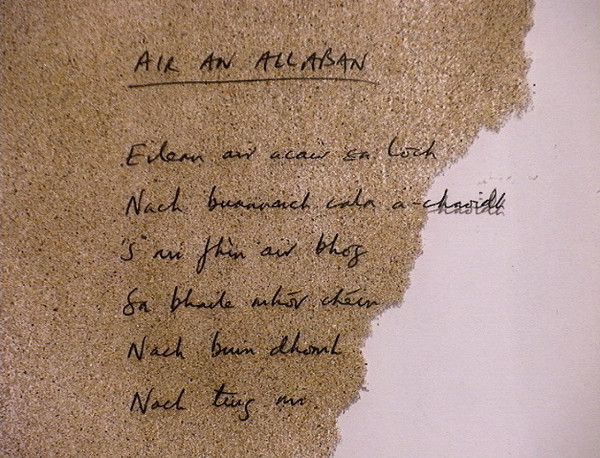 AIR AN ALLABAN
Eilean air acair sa loch
Nach buannaich cala a-chaoidh
'S mi fhìn air bhog
Sa bhaile mhòr chéin
Nach buin dhomh
Nach tuig mi